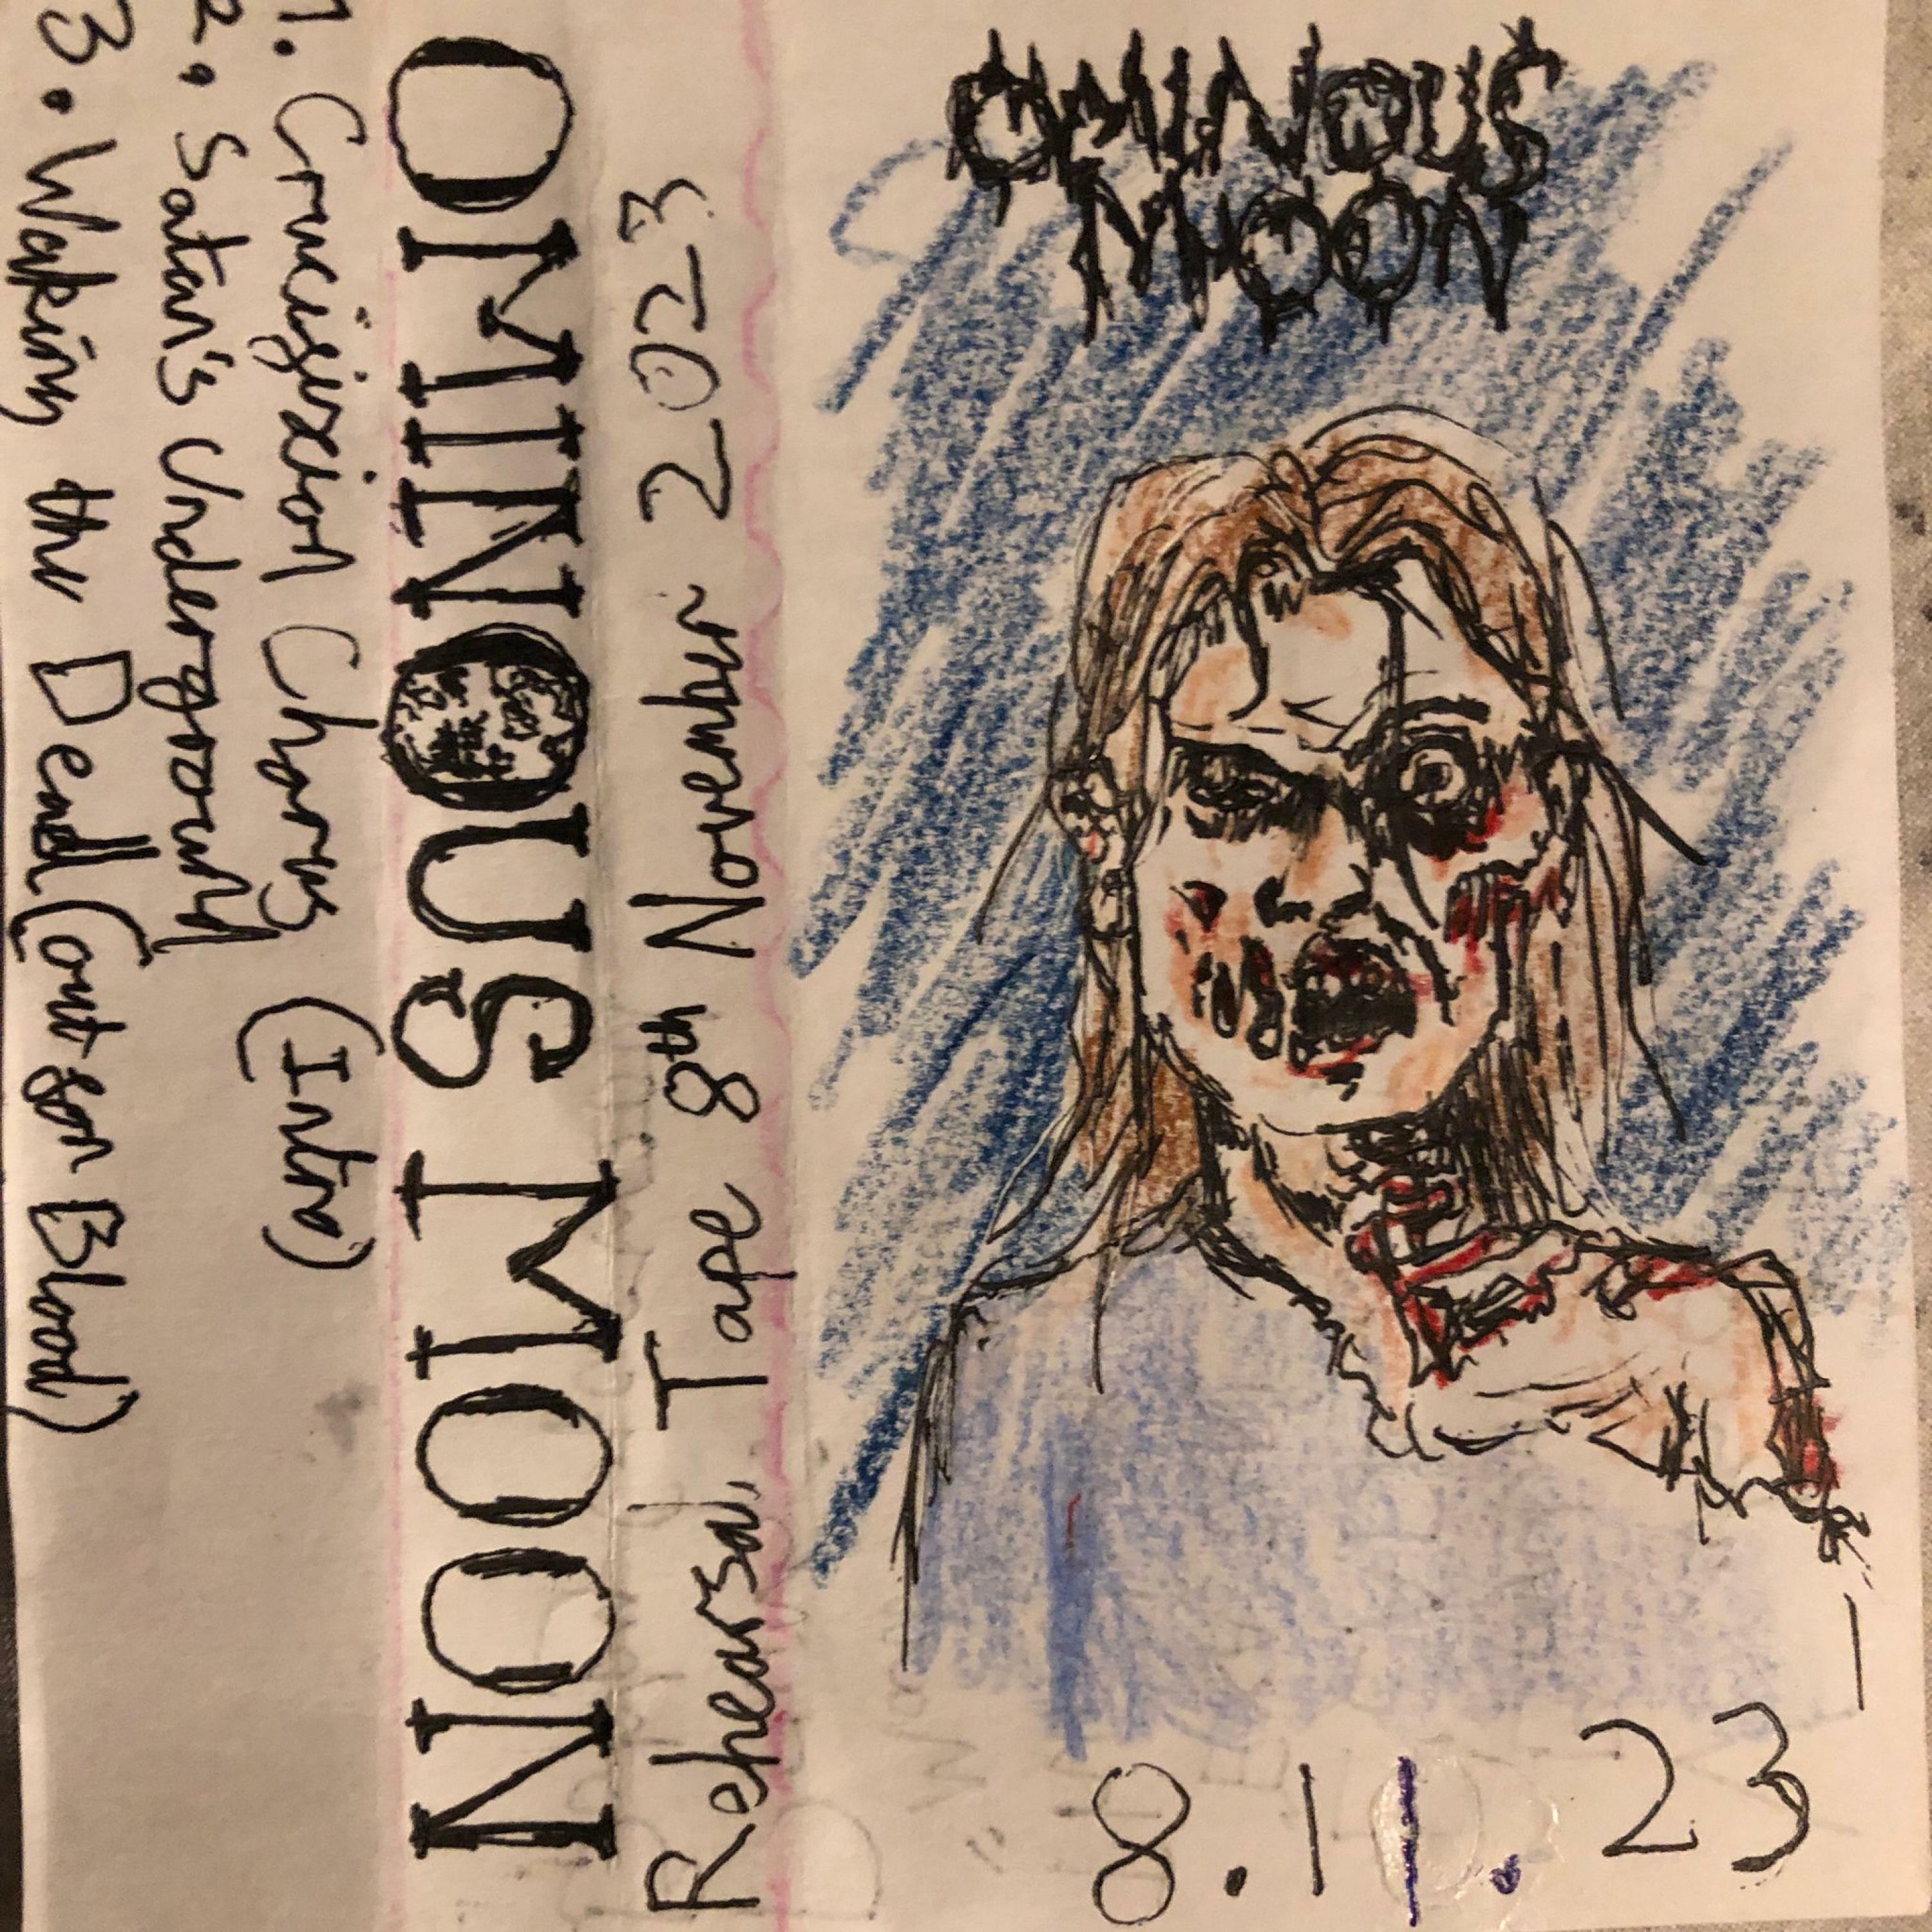 OMINOUS
MOON
8.11.23
Rehearsal Tape 8th November 2023
OMINOUS MOON
1. Crucifixion Chorus (Intro)
2. Satan's Underground
3. Waking the Dead (Out for Blood)